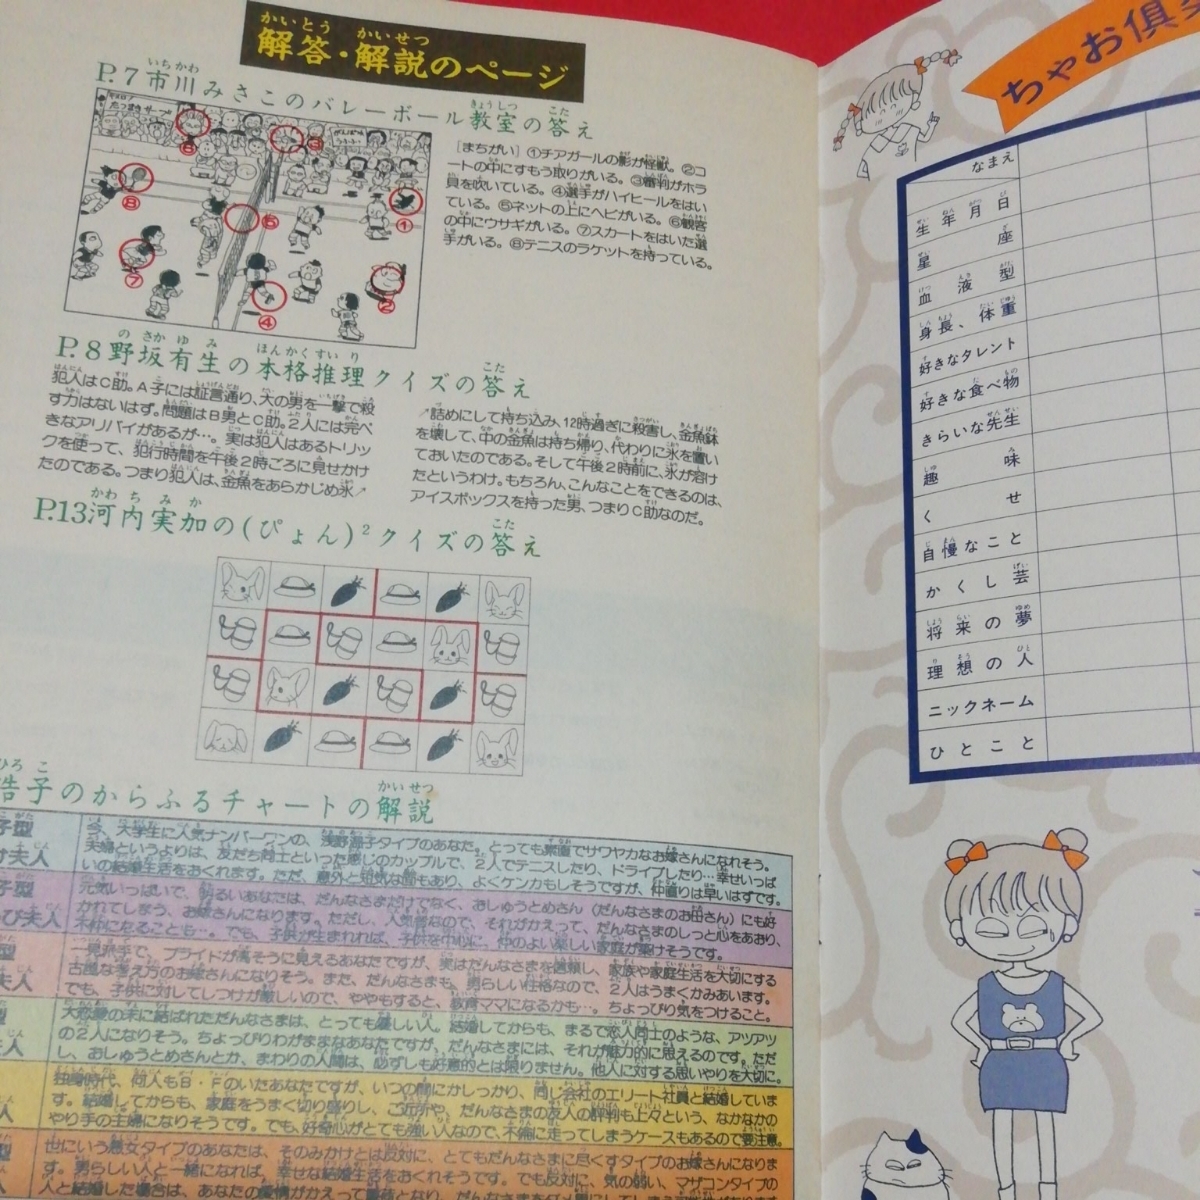 解答・解説のページ
P.7市川みさこのバレーボール教室の答え
[まちがい] ①チアガールの影が怪獣。②コ
ートの中にすもう取りがいる。③審判がホラ
貝を吹いている。④選手がハイヒールをはい
ている。⑤ネットの上にヘビがいる。⑥観客
の中にウサギがいる。⑦スカートをはいた選
手がいる。⑧テニスのラケットを持っている。
P.8野坂有生の本格推理クイズの答え
犯人はC助。A子には証言通り、大の男を一撃で殺
す力はないはず。問題はB男とC助。2人には完ぺ
きなアリバイがあるが…。実は犯人はあるトリッ
クを使って、犯行時間を午後2時ごろに見せかけ
たのである。つまり犯人は、金魚をあらかじめ氷↗
↗詰めにして持ち込み、12時過ぎに殺害し、金魚鉢
を壊して、中の金魚は持ち帰り、代わりに氷を置い
ておいたのである。そして午後2時前に、氷が溶け
たというわけ。もちろん、こんなことをできるのは、
アイスボックスを持った男、つまりC助なのだ。
P.13河内実加の(ぴょん)²クイズの答え
浩子のからふるチャートの解説
子型
夫人
今、大学生に人気ナンバーワンの、浅野温子タイプのあなた。とっても素直でサワヤカなお嫁さんになれそう。
夫婦というよりは、友だち同士といった感じのカップルで、2人でテニスしたり、ドライブしたり…幸せいっぱ
いの結婚生活をおくれます。ただ、意外と短気な面もあり、よくケンカもしそうですが、仲直りは早いはずです。
子型
び夫人
元気いっぱいで、明るいあなたは、だんなさまだけでなく、おしゅうとめさん（だんなさまのお母さん）にも好
かれてしまう、お嫁さんになります。ただし、人気者なので、それがかえって、だんなさまのしっと心をあおり、
不仲になることも…。でも、子供が生まれれば、子供を中心に、仲のよい楽しい家庭が築けそうです。
型
夫人
一見派手で、プライドが高そうに見えるあなたですが、実はだんなさまを信頼し、家族や家庭生活を大切にする
古風な考え方のお嫁さんになりそう。また、だんなさまも、男らしい性格なので、2人はうまくかみあいます。
でも、子供に対してしつけが厳しいので、ややもすると、教育ママになるかも…。ちょっぴり気をつけること。
型
夫人
大恋愛の末に結ばれただんなさまは、とっても優しい人。結婚してからも、まるで恋人同士のような、アツアツ
の2人になりそう。ちょっぴりわがままなあなたですが、だんなさまには、それが魅力的に思えるのです。ただ
し、おしゅうとめさんとか、まわりの人間は、必ずしも好意的とは限りません。他人に対する思いやりを大切に。
独身時代、何人もB・Fのいたあなたですが、いつの間にかしっかり、同じ会社のエリート社員と結婚していま
す。結婚してからも、家庭をうまく切り盛りし、ご近所や、だんなさまの友人の評判も上々という、なかなかの
やり手の主婦になりそうです。でも、好奇心がとても強い人なので、不倫に走ってしまうケースもあるので要注意。
型
人
世にいう悪女タイプのあなたは、そのみかけとは反対に、とてもだんなさまに尽くすタイプのお嫁さんになりま
す。男らしい人と一緒になれば、幸せな結婚生活をおくれそうです。でも反対に、気の弱い、マザコンタイプの
人と結婚した場合は、あなたの愛情がかえって
ちゃお倶
なまえ
生年月日
星座
血液型
身長、体重
好きなタレント
好きな食べ物
きらいな先生
趣味
くせ
自慢なこと
かくし芸
将来の夢
理想の人
ニックネーム
ひとこと